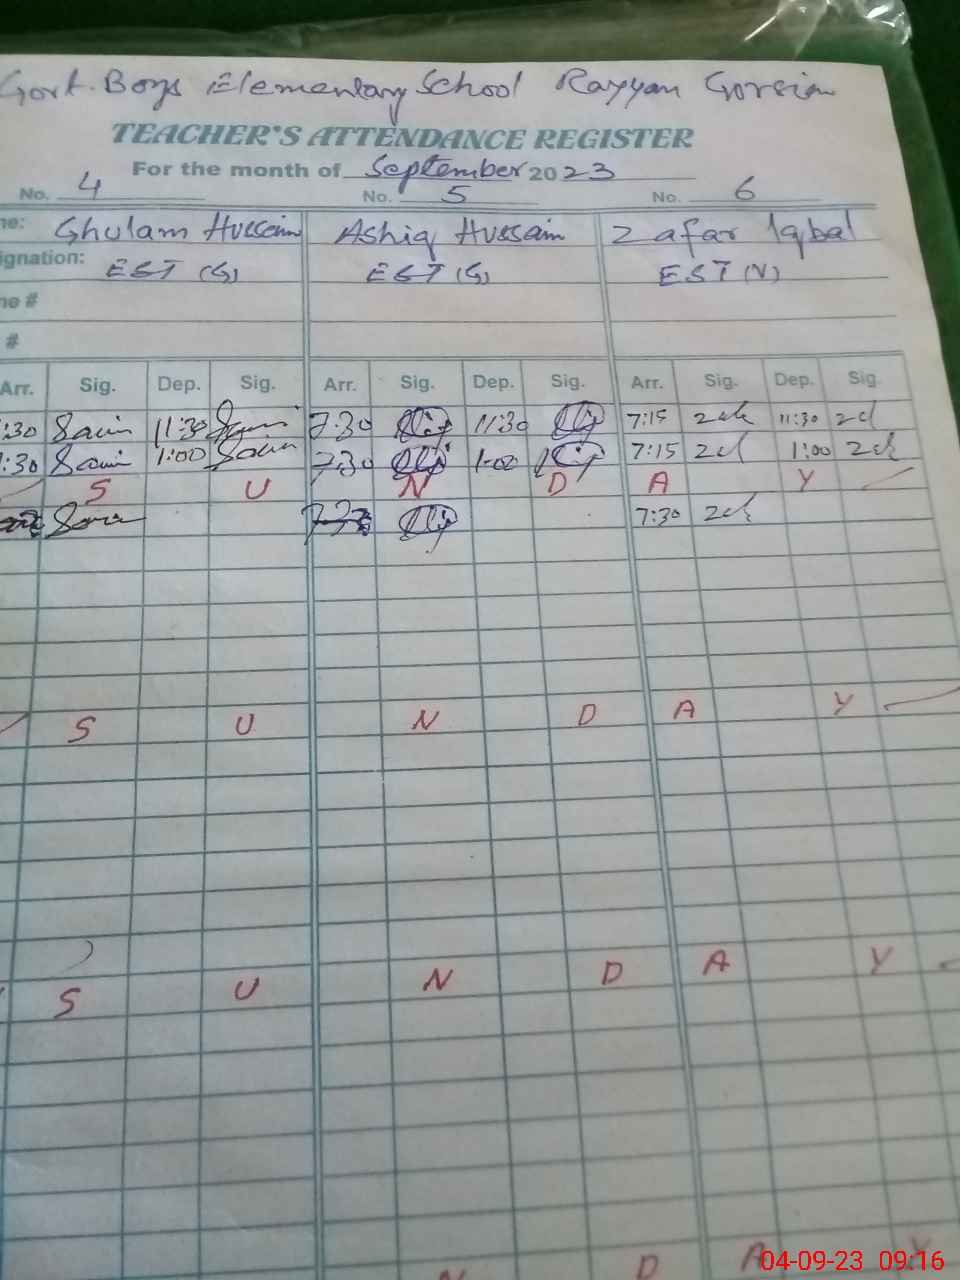 Govt. Boys Elementary School Rayyan Gorsian
TEACHER'S ATTENDANCE REGISTER
For the month of September 2023
No. 4 No. 5 No. 6
me: Ghulam Hussain Ashiq Hussain Zafar Iqbal
ignation: EST (G) EST (G) EST (V)
ne #
#
Arr. Sig. Dep. Sig. Arr. Sig. Dep. Sig. Arr. Sig. Dep. Sig.
:30 11:30 7:30 11:30 7:15 11:30
:30 1:00 7:30 1:00 7:15 1:00
S U N D A Y
7:30
S U N D A Y
S U N D A Y
N D A Y
04-09-23 09:16